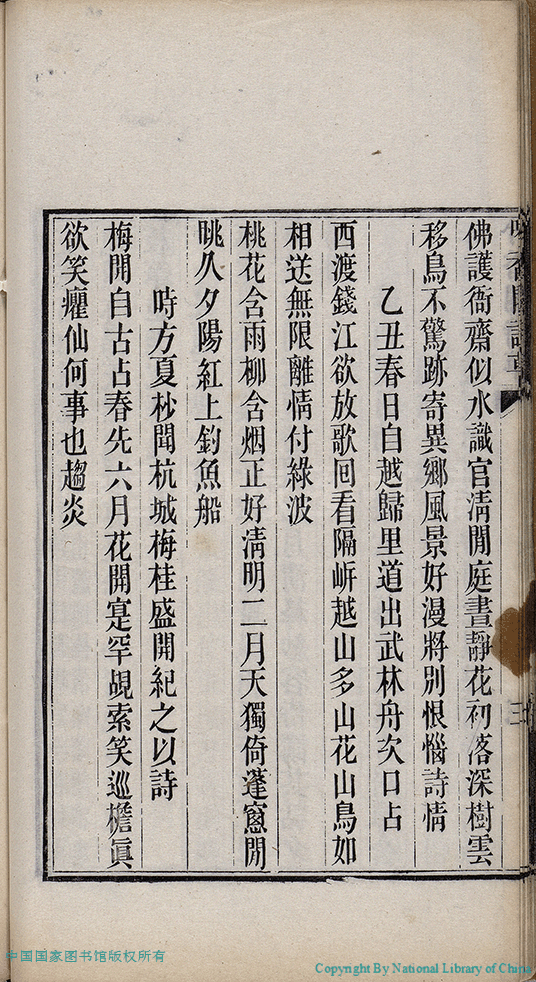 佛護衙齋似水識官淸閒庭晝靜花初落深樹雲
移鳥不驚跡寄異鄉風景好漫將別恨惱詩情
乙丑春日自越歸里道出武林舟次口占
西渡錢江欲放歌囘看隔岍越山多山花山鳥如
相送無限離情付綠波
桃花含雨柳含烟正好淸明二月天獨倚蓬窻閒
眺久夕陽紅上釣魚船
時方夏杪聞杭城梅桂盛開紀之以詩
梅開自古占春先六月花開寔罕覩索笑巡檐眞
欲笑癯仙何事也趨炎
中国国家图书馆版权所有
Copyright By National Library of China